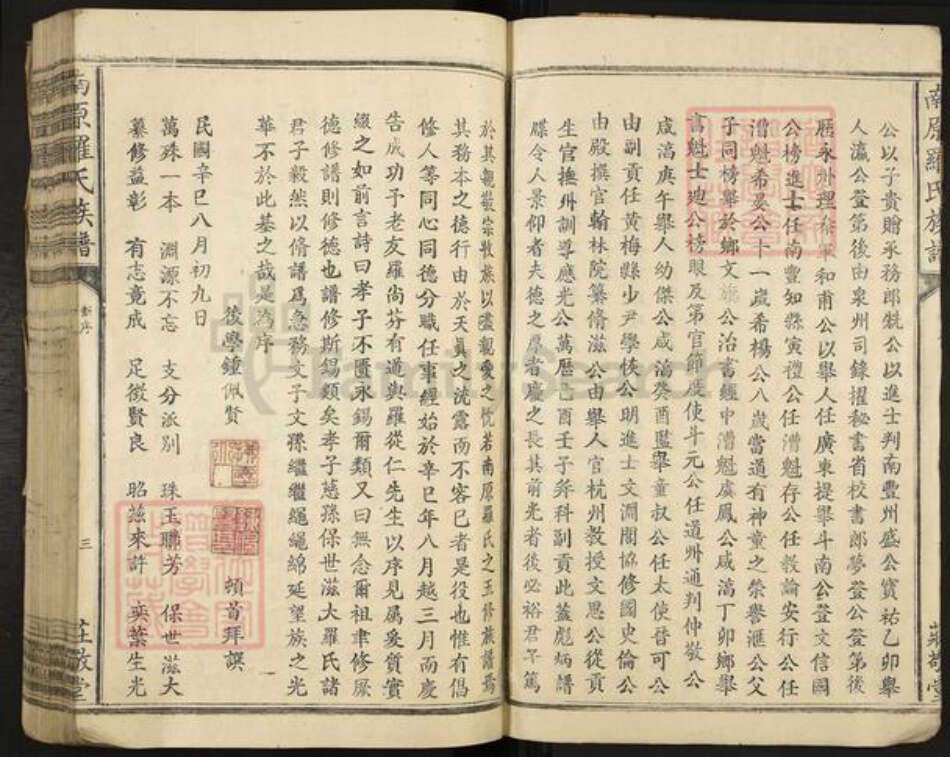 南原羅氏族譜
公以子貴贈承務郎甡公以進士判南豐州盛公寶祐乙卯舉
人瀛公登第後由泉州司錄擢秘書省校書郎夢登公登第後
歷永州理 和甫公以舉人任廣東提舉斗南公登文信國
公榜進士任南豐知縣寅禮公任漕魁存公任教諭安行公任
漕魁希晏公十一歲希楊公八歲當道有神童之榮譽滙公父
子同榜舉於鄉文 公治書經中漕魁虞鳳公咸淳丁卯鄉舉
書魁士迪公榜眼及第官節度使斗元公任道州通判仲敬公
咸淳庚午舉人幼傑公咸淳癸酉監舉童叔公任太使晉可公
由副貢任黃梅縣少尹學俠公明進士文淵閣協修國史倫公
由殿撰官翰林院纂脩滋公由舉人官杭州教授文恩公從貢
生官撫州訓導應光公萬歷己酉壬子兩科副貢此蓋彪炳譜
牒令人景仰者夫德之厚者慶之長其前光者後必裕君子篤
莊敬堂
於其親敬宗收族以溢親愛之忱若南原羅氏之玉修族譜焉
其務本之德行由於天真之流露而不容已者是役也惟有倡
修人等同心同德分職任事經始於辛巳年八月越三月而慶
告成功予老友羅尚芬有道與羅從仁先生以序見屬爰質實
綴之如前言詩曰孝子不匱永錫爾類又曰無念爾祖聿修厥
德修譜則修德也譜修斯錫類矣孝子慈孫保世滋大羅氏諸
君子毅然以脩譜爲急務文子文孫繼繼繩繩綿延望族之光
華不於此基之哉是為序
後學鍾佩賢 頓首拜譔
民國辛巳八月初九日
萬殊一本 淵源不忘 支分派別 珠玉聯芳 保世滋大
纂修益彰 有志竟成 足徵賢良 昭茲來許 奕葉生光
南原羅氏族譜
序
三
莊敬堂
FamilySearch